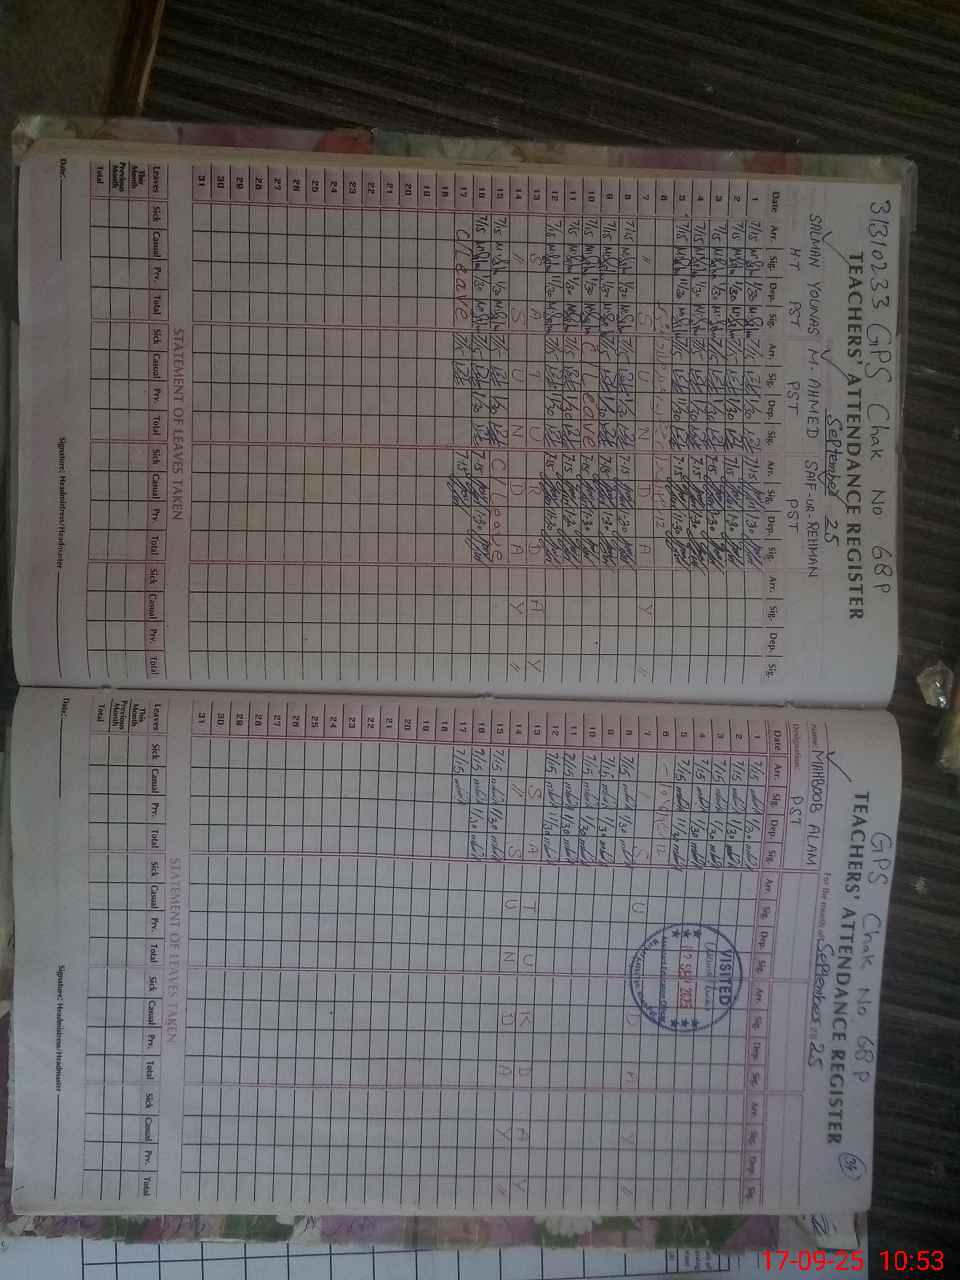 31310233 GPS Chak No 68 P
TEACHERS' ATTENDANCE REGISTER
September 25
SALMAN YOUNAS M. AHMED SAIF-UR-REHMAN
H.T PST PST PST
Date Arr. Sig. Dep. Sig. Arr. Sig. Dep. Sig. Arr. Sig. Dep. Sig. Arr. Sig. Dep. Sig.
1 7/15 1/30 7/15 1/30 7/15 1:30
2 7/15 1/30 7/15 1/30 7/15 1:30
3 7/15 1/30 7/15 1/30 7:15 1:30
4 7/15 1/30 7/15 1/30 7:15 1:30
5 7/15 11/30 7/15 11/30 7:15 11:30
6
7 " S U N D A Y "
8 7/15 1/30 7/15 1/30 7:15 1:30
9 7/15 1/30 7/15 1/30 7:15 1:30
10 7/15 1/30 C/Leave 7:15 1:30
11 7/15 1/30 7/15 1/30 7:15 1:30
12 7/15 11/30 7/15 11/30 7:15 11:30
13 S A T U R D A Y
14 " S U N D A Y "
15 7/15 1/30 7/15 1/30 C/Leave
16 7/15 1/30 7/15 1/30 7:15 1:30
17 C/Leave 7/15 7:15
18
19
20
21
22
23
24
25
26
27
28
29
30
31
STATEMENT OF LEAVES TAKEN
Leaves Sick Casual Prv. Total Sick Casual Prv. Total Sick Casual Prv. Total Sick Casual Prv. Total
This Month
Previous Month
Total
Date: Signature: Headmistress/Headmaster
GPS Chak No 68 P
TEACHERS' ATTENDANCE REGISTER 34
For the month of September 25
Name MAHBOOB ALAM
Designation PST
Date Arr. Sig. Dep. Sig. Arr. Sig. Dep. Sig. Arr. Sig. Dep. Sig. Arr. Sig. Dep. Sig.
1 7/15 1/30
2 7/15 1/30
3 7/15 1/30
4 7/15 1/30
5 7/15 11/30
6
7 S U N D A Y "
8 7/15 1/30
9 7/15 1/30
10 7/15 1/30
11 7/15 1/30
12 7/15 11/30
13 S A T U R D A Y
14 " S U N D A Y "
15 7/15 1/30
16 7/15 1/30
17 7/15
18
19
20
21
22
23
24
25
26
27
28
29
30
31
VISITED
STATEMENT OF LEAVES TAKEN
Leaves Sick Casual Prv. Total Sick Casual Prv. Total Sick Casual Prv. Total Sick Casual Prv. Total
This Month
Previous Month
Total
Date: Signature: Headmistress/Headmaster
17-09-25 10:53